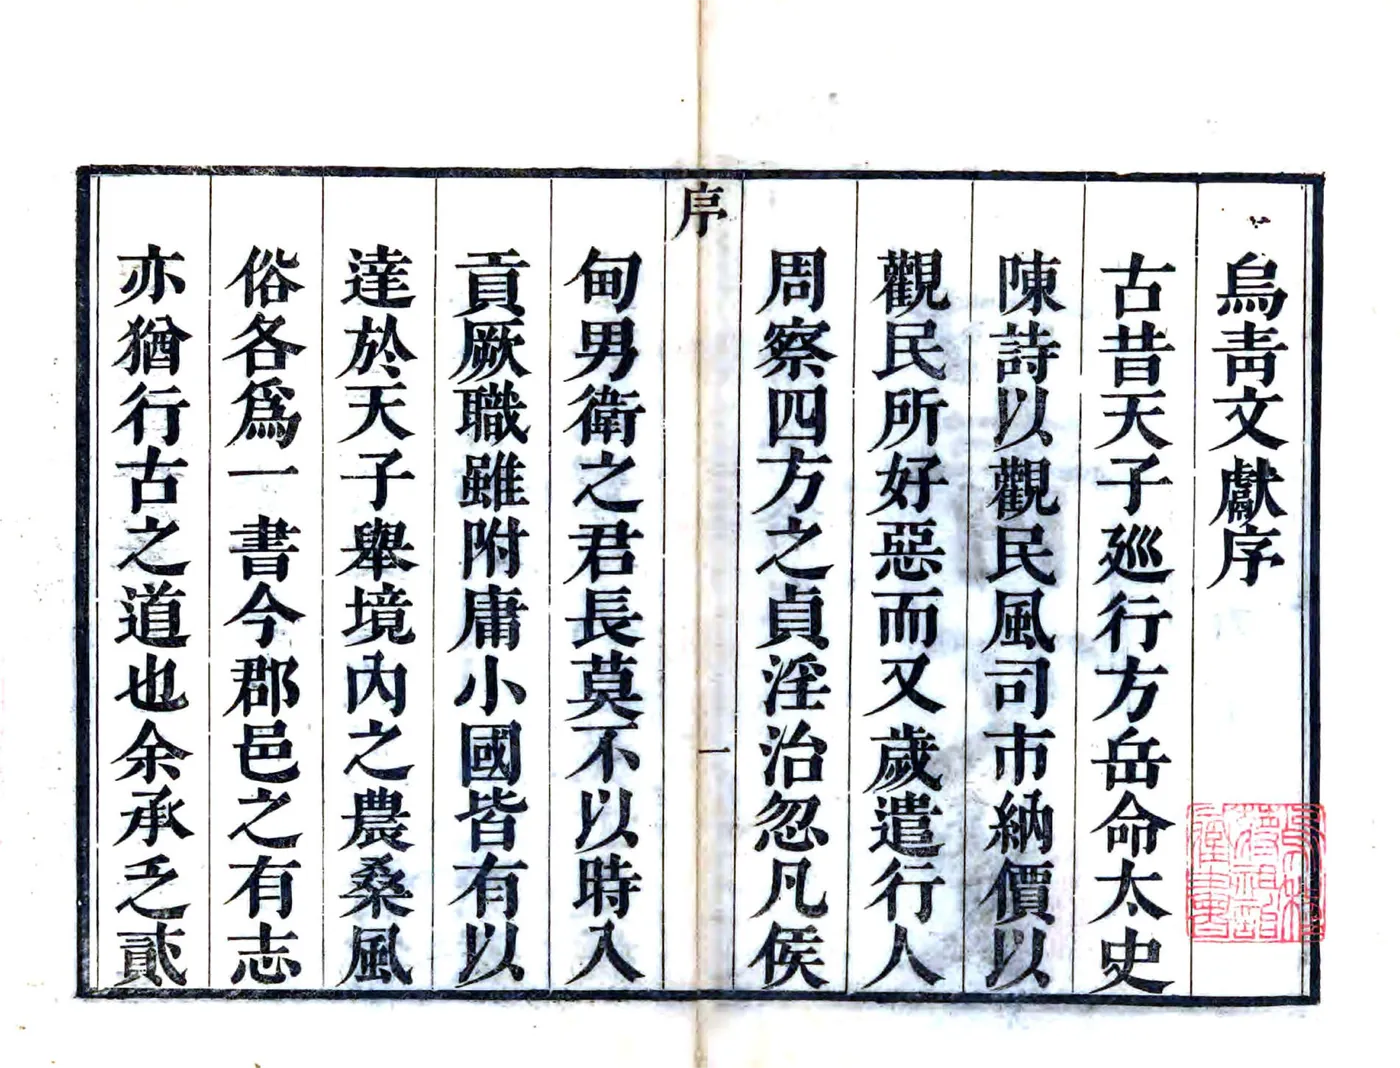 烏青文獻序
古昔天子廵行方岳命太史
陳詩以觀民風司市納價以
觀民所好惡而又歲遣行人
周察四方之貞淫治忽凡侯
序
一
甸男衛之君長莫不以時入
貢厥職雖附庸小國皆有以
逹於天子舉境內之農桑風
俗各爲一書今郡邑之有志
亦猶行古之道也余承乏貳